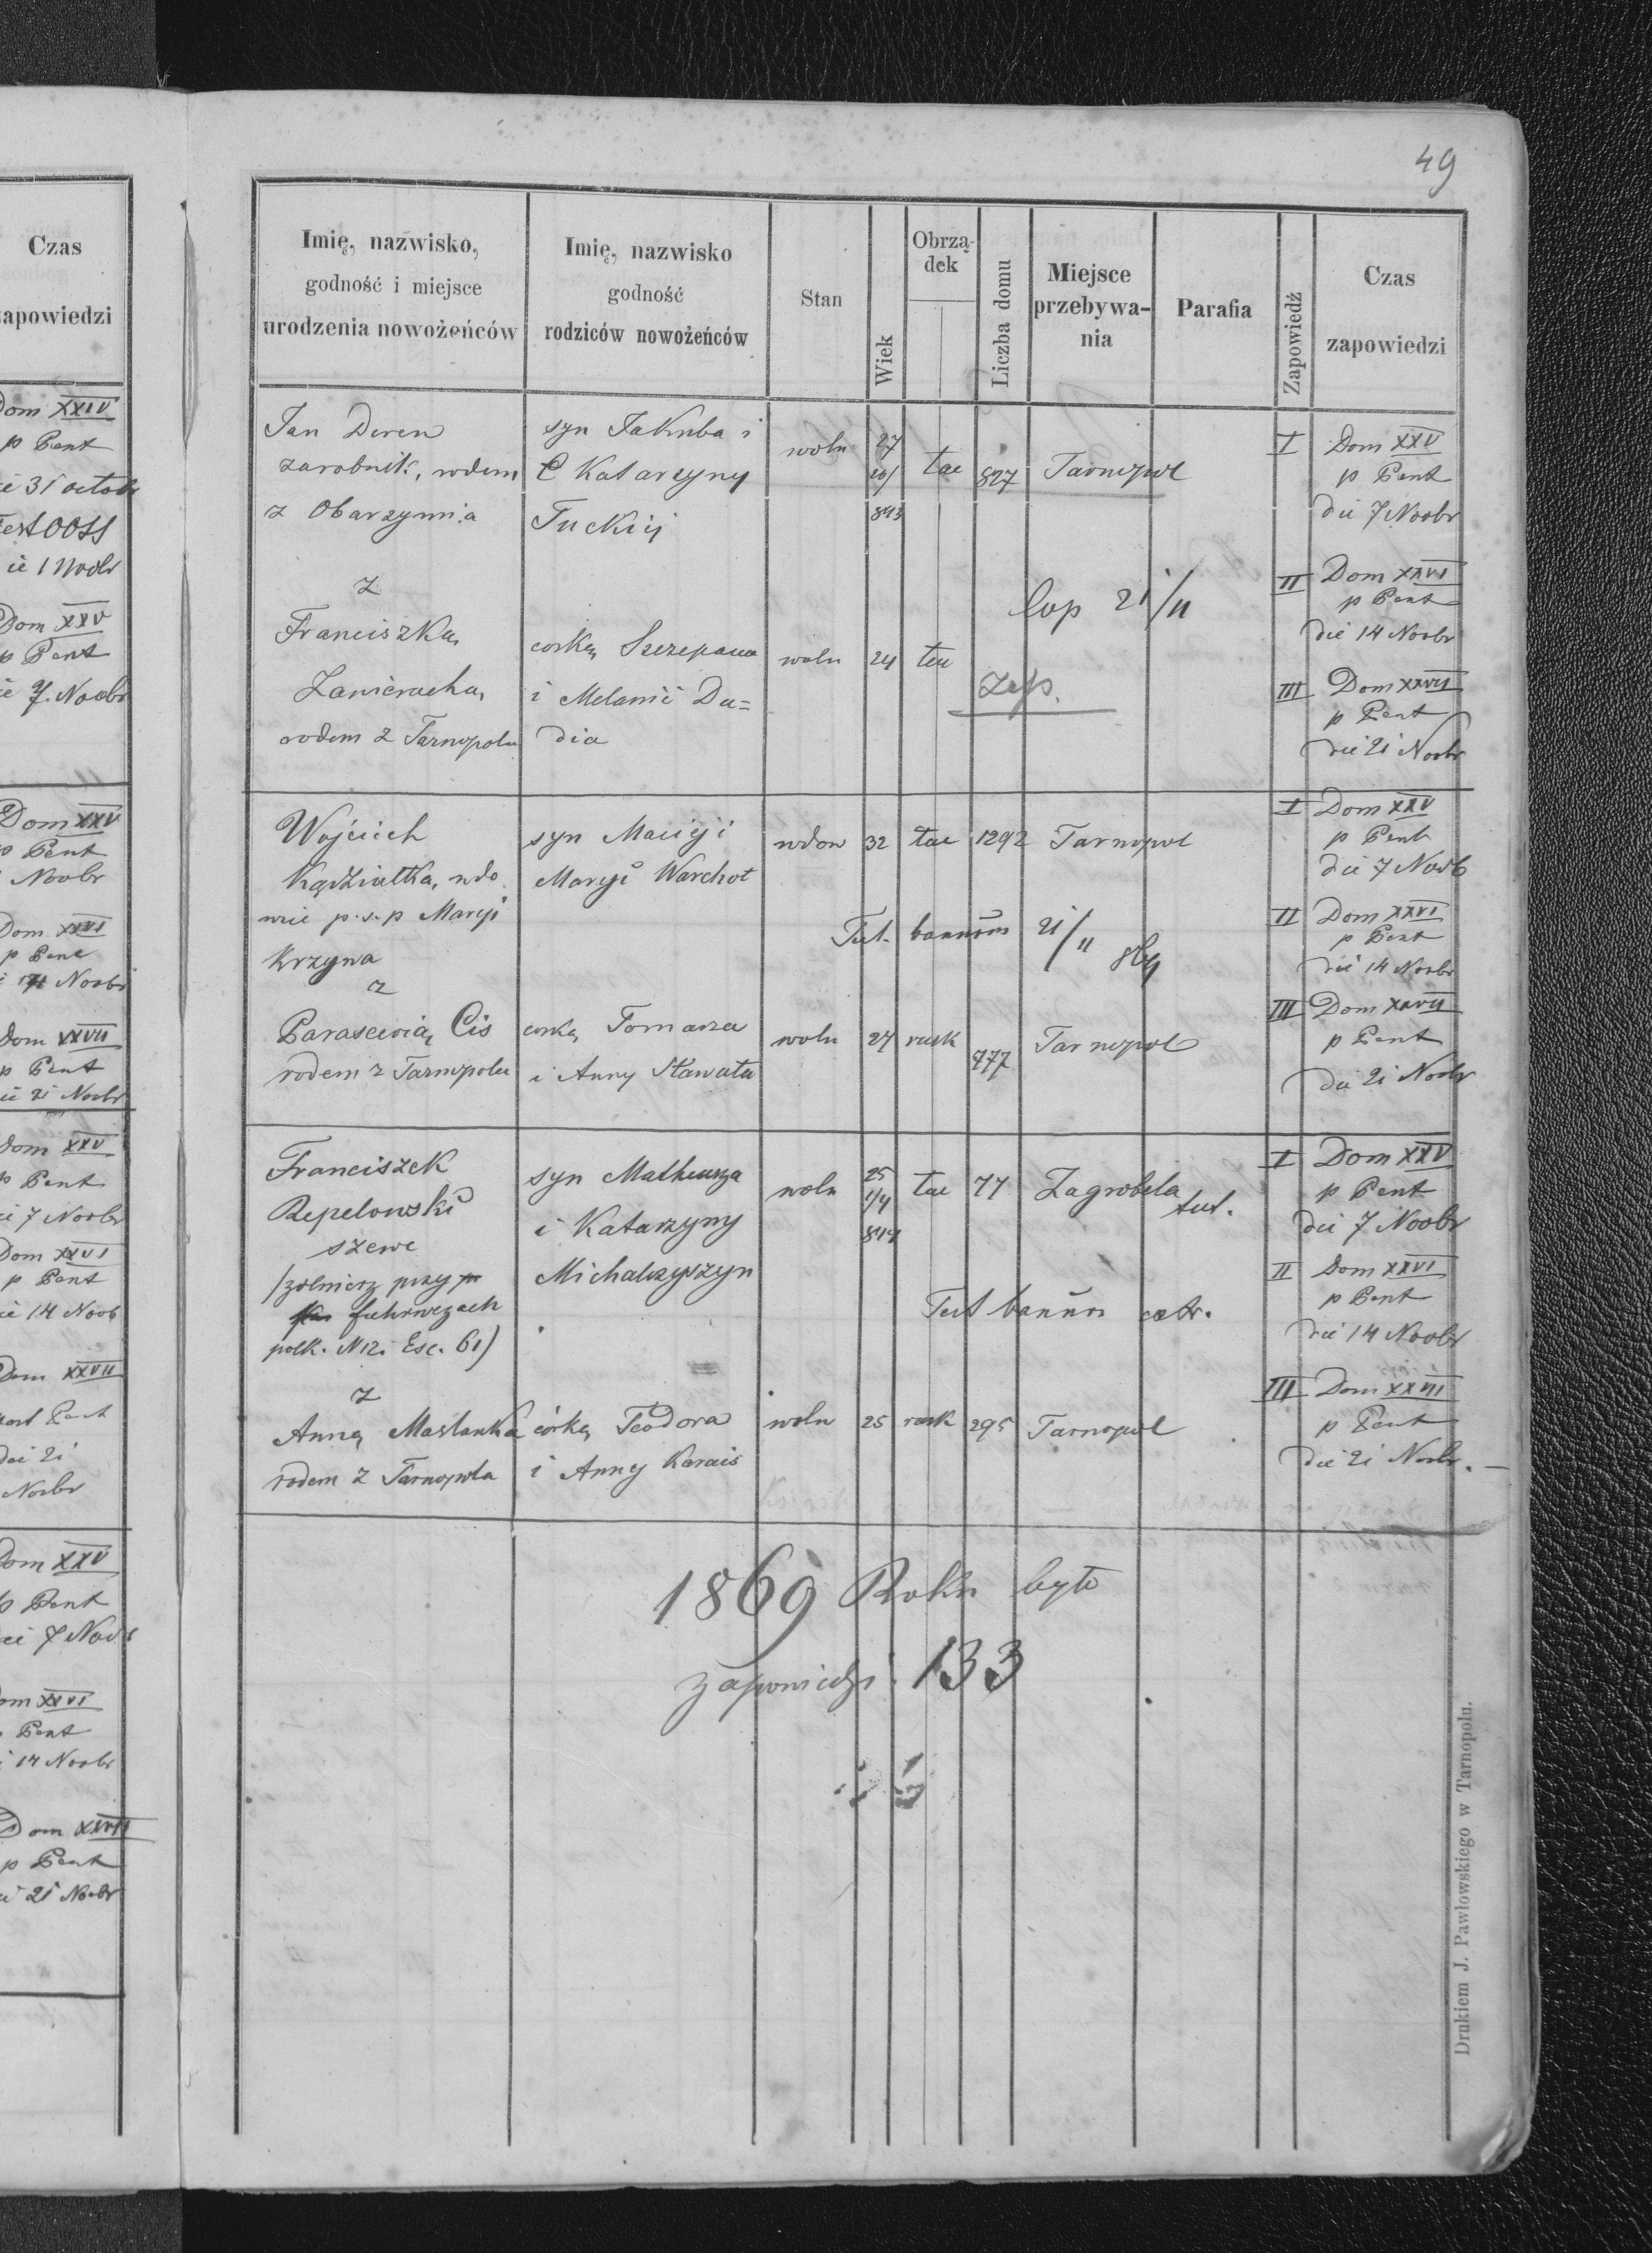 49
Czas
zapowiedzi
Dom XXIV
p Pent
31 octob
Fest OOSS
1 Noobr
Dom XXV
p Pent
7. Noobr
Dom XXV
p Pent
Noobr
Dom XXVI
p Pent
14 Noobr
Dom XXVII
p Pent
21 Noobr
Dom XXV
p Pent
7 Noobr
Dom XXVI
p Pent
14 Noob
Dom XXVII
post Pent
die 21
Noobr
Dom XXV
p Pent
7 Noob
Dom XXVI
p Pent
14 Noobr
Dom XXVII
p Pent
21 Noobr
Imię, nazwisko,
godność i miejsce
urodzenia nowożeńców
Imię, nazwisko
godność
rodziców nowożeńców
Stan
Wiek
Obrzą-
dek
Liczba domu
Miejsce
przebywa-
nia
Parafia
Zapowiedź
Czas
zapowiedzi
Jan Deren
zarobnik, rodem
z Obarzymia
syn Jakuba i
Katarzyny
Tuckiij
woln
27
10/
843
łac
827
Tarnopol
I Dom XXV
p Pent
die 7 Noobr
z
Franciszką
rodem z Tarnopolu
corką Szczepana
i Melanii Du=
dia
woln
24
łac
Cop 21/11
Zap.
II Dom XXVI
p Pent
die 14 Noobr
III Dom XXVII
p Pent
die 21 Noobr
Wojciech
Kądziałka, wdo
wiec p. ś. p Maryi
Krzywa
syn Maciej i
Maryi Warchoł
wdow
32
łac
1292
Tarnopol
I Dom XXV
p Pent
die 7 Noob
Tut. bannum 21/11
II Dom XXVI
p Pent
die 14 Noobr
z
Parascewią Cis
rodem z Tarnopolu
corką Tomasza
i Anny Sławuta
woln
27
rusk
777
Tarnopol
III Dom XXVII
p Pent
die 21 Noobr
Franciszek
Repelowski
szewc
/żołnierz przy
fuhrwezach
polk. N 12. Esc. 61)
syn Matheusza
i Katarzyny
Michalczyszyn
woln
25
1/4
844
łac
77
Zagrobela
tut.
I Dom XXV
p Pent
die 7 Noobr
Tut bannum extr.
II Dom XXVI
p Pent
die 14 Noobr
z
Anną Maslanka
rodem z Tarnopola
córką Teodora
i Anny Karais
woln
25
rusk
295
Tarnopol
III Dom XXVII
p Pent
die 21 Noobr.
1869 Roku było
zapowiedzi 133
Drukiem J. Pawłowskiego w Tarnopolu.